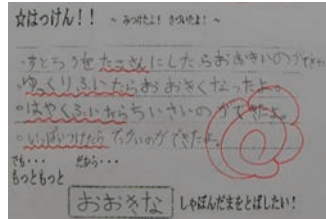 ☆はっけん！！ ～ みつけたよ！ きづいたよ！ ～
・すとろうをたくさんにしたらおおきいのができた
・ゆっくりふいたらおおきくなったよ。
・はやくふいたらちいさいのができたよ。
・いっぱいつけたらでっかいのができたよ。
でも・・・ だから・・・
もっともっと
おおきな しゃぼんだまをとばしたい！